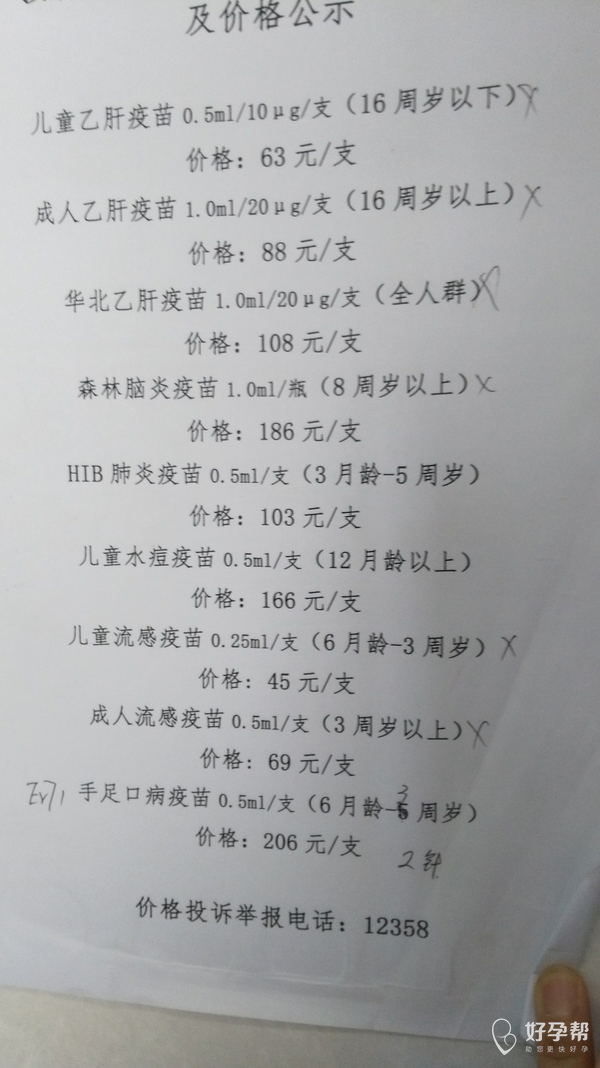 及价格公示
儿童乙肝疫苗 0.5ml/10μg/支（16 周岁以下）×
价格：63 元/支
成人乙肝疫苗 1.0ml/20μg/支（16 周岁以上）×
价格：88 元/支
华北乙肝疫苗 1.0ml/20μg/支（全人群）
价格：108 元/支
森林脑炎疫苗 1.0ml/瓶（8 周岁以上）×
价格：186 元/支
HIB 肺炎疫苗 0.5ml/支（3 月龄-5 周岁）
价格：103 元/支
儿童水痘疫苗 0.5ml/支（12 月龄以上）
价格：166 元/支
儿童流感疫苗 0.25ml/支（6 月龄-3 周岁）×
价格：45 元/支
成人流感疫苗 0.5ml/支（3 周岁以上）×
价格：69 元/支
EV71 手足口病疫苗 0.5ml/支（6 月龄-3 周岁）
价格：206 元/支
2针
价格投诉举报电话：12358
好孕帮
助您更快好孕